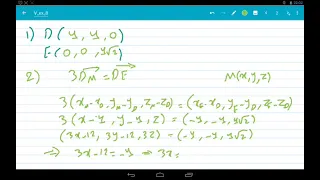 1) D(4, 4, 0)
E(0, 0, 4√2)
2) 3DM⃗ = DE⃗ M(x, y, z)
3(x_M-x_D, y_M-y_D, z_M-z_D) = (x_E-x_D, y_E-y_D, z_E-z_D)
3(x-4, y-4, z) = (-4, -4, 4√2)
(3x-12, 3y-12, 3z) = (-4, -4, 4√2)
⇒ 3x-12 = -4 ⇒ 3x =